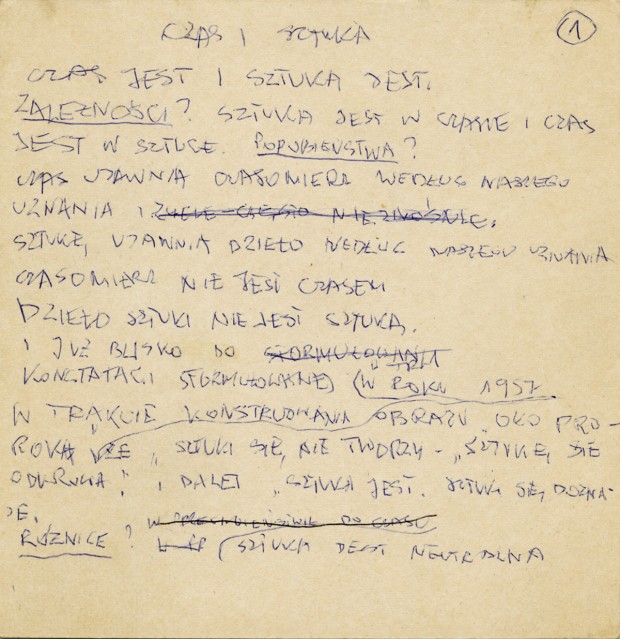 CZAS I SZTUKA
1
CZAS JEST I SZTUKA JEST.
ZALEŻNOŚCI? SZTUKA JEST W CZASIE I CZAS
JEST W SZTUCE. PODOBIEŃSTWA?
CZAS UJAWNIA CZASOMIERZ WEDŁUG NASZEGO
UZNANIA I
SZTUKĘ, UJAWNIA DZIEŁO WEDŁUG NASZEGO UZNANIA
CZASOMIERZ NIE JEST CZASEM
DZIEŁO SZTUKI NIE JEST SZTUKĄ,
I JUŻ BLISKO DO SFORMUŁOWANIA
KONSTATACJI SFORMUŁOWANEJ (W ROKU 1957
W TRAKCIE KONSTRUOWANIA OBRAZU "OKO PRO-
ROKA" ŻE "SZTUKI SIĘ, NIE TWORZY - "SZTUKĘ, SIĘ
ODKRYWA" I DALEJ "SZTUKA JEST. SZTUKI SIĘ, DOZNA-
JE.
RÓŻNICE? W PRZECIWIEŃSTWIE DO CZASU
SZTUKA JEST NEUTRALNA